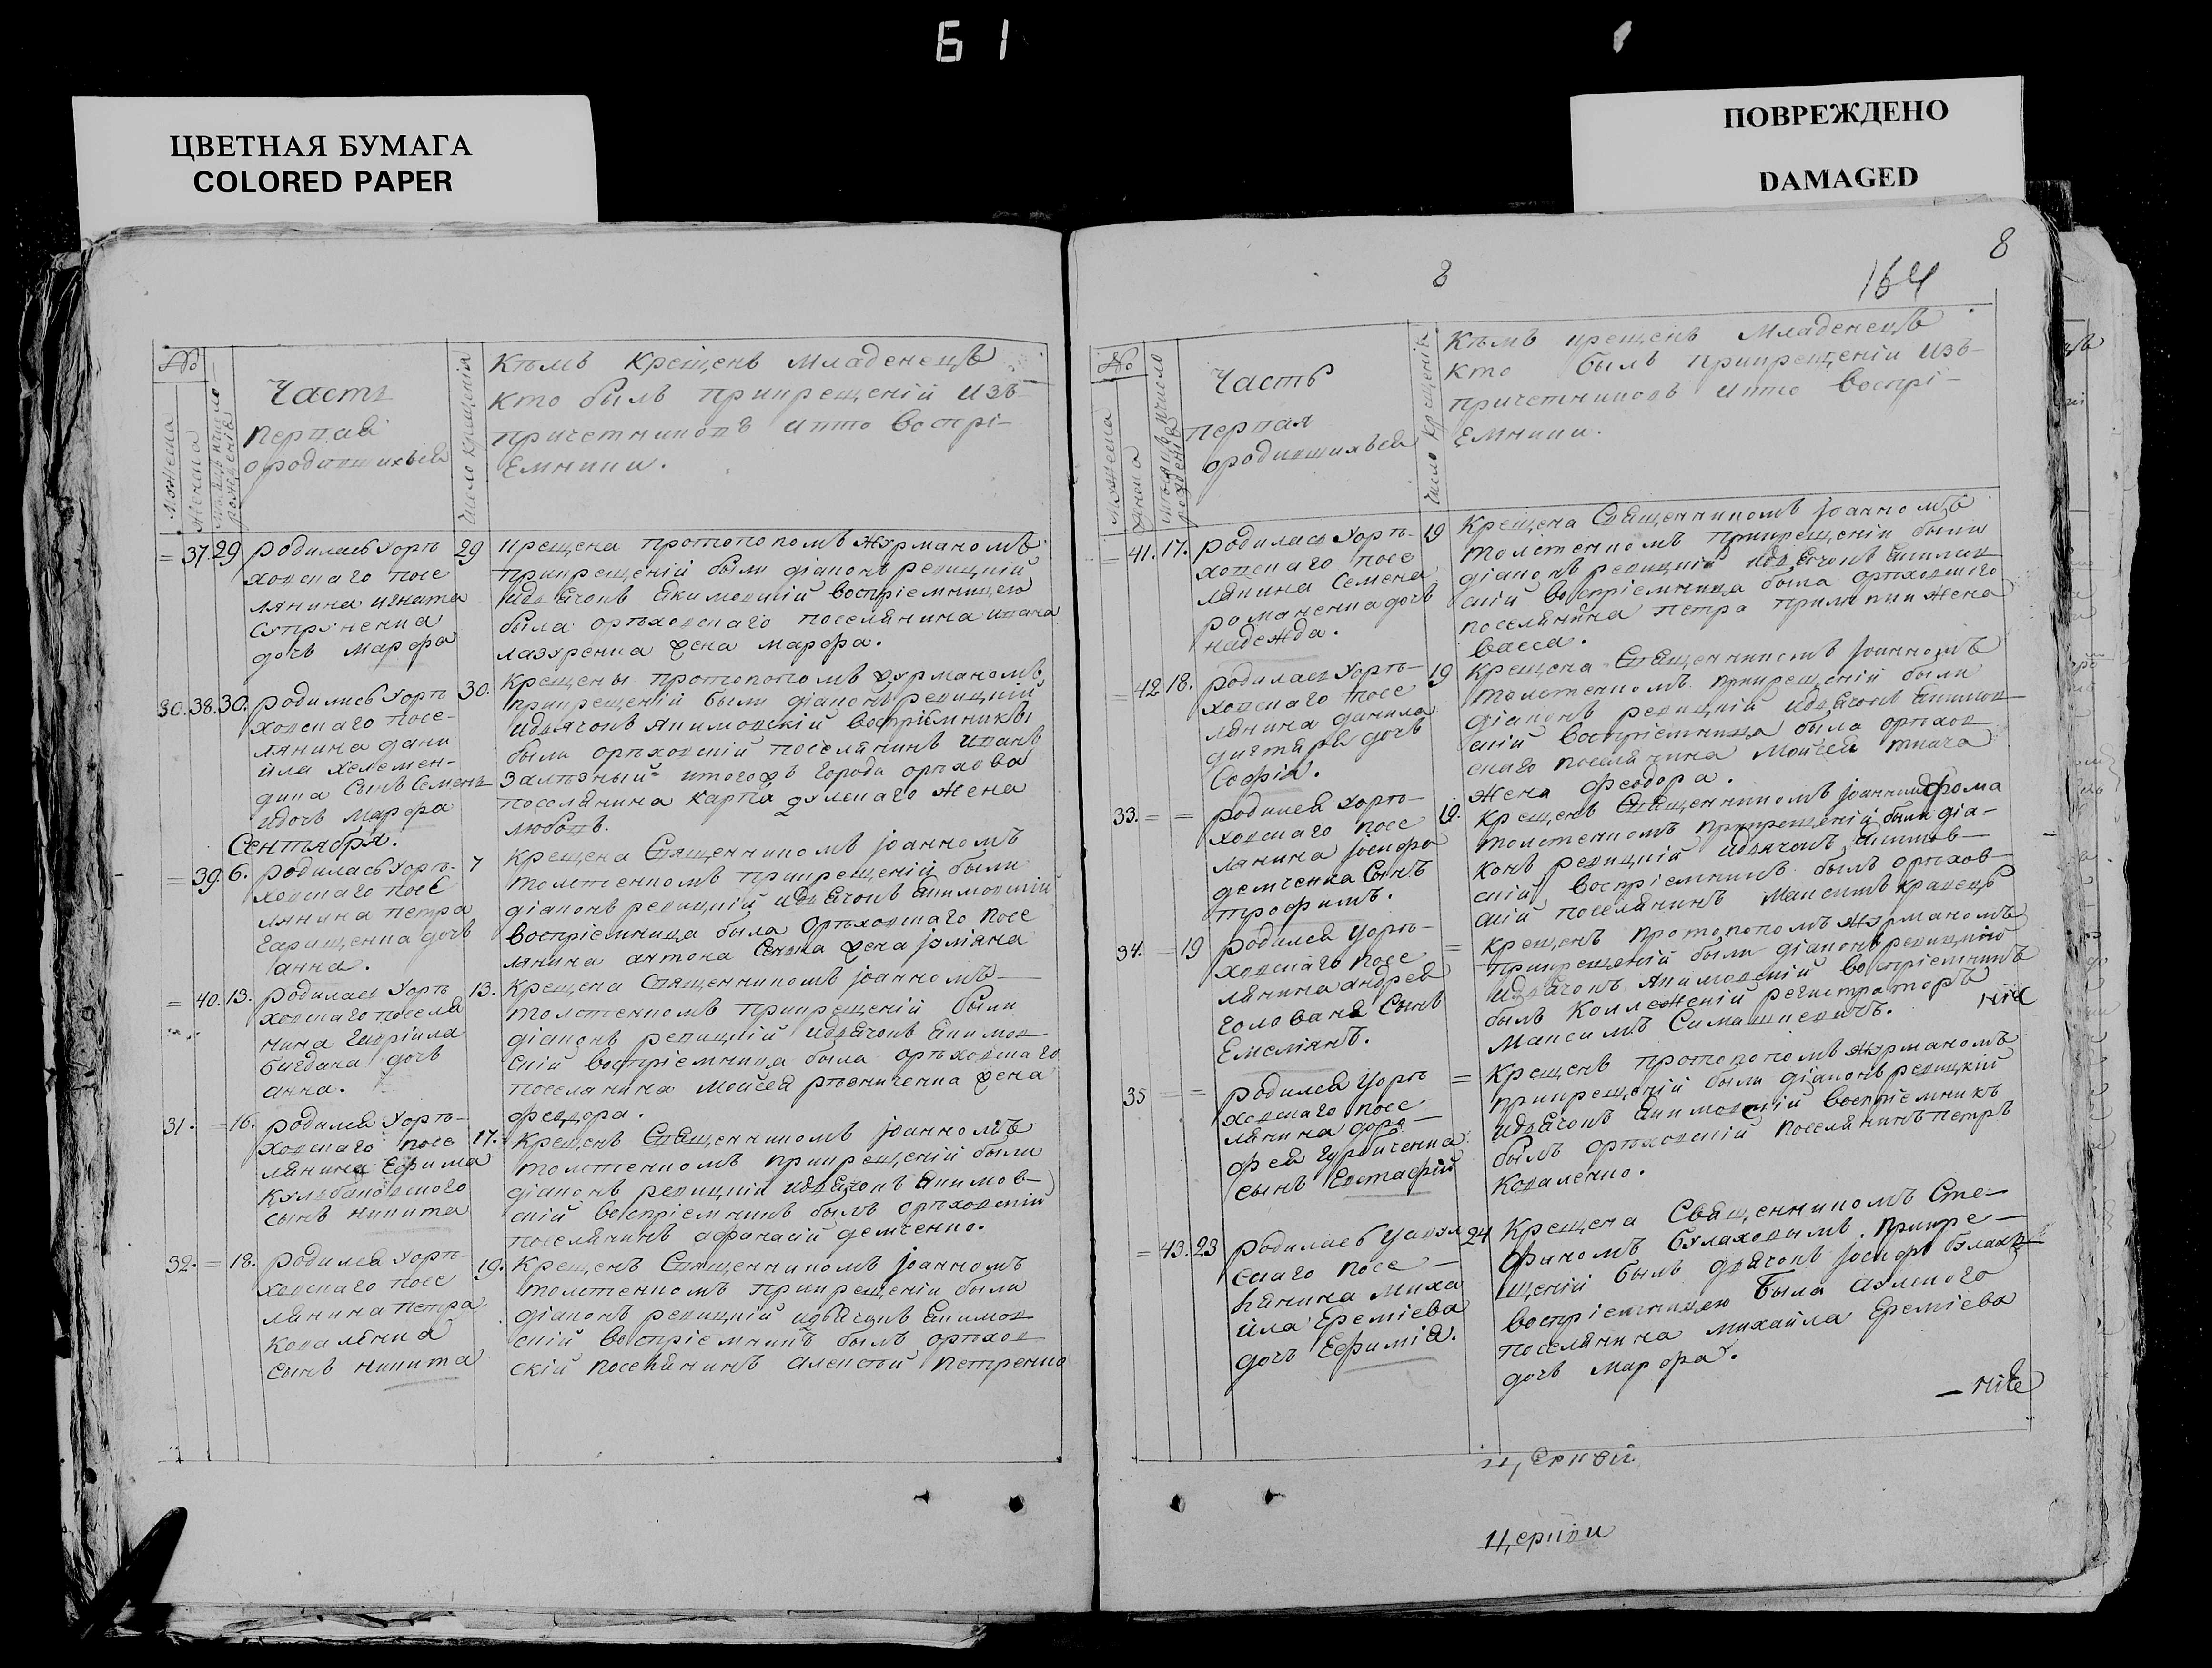 Б 1
ЦВЕТНАЯ БУМАГА
COLORED PAPER
ПОВРЕЖДЕНО
DAMAGED
8
8
164
№
Часть
первая
ородившихъся
Число крещенія
Кѣмъ крещенъ младенецъ
кто былъ прикрещеній изъ
причетниковъ икто воспрі-
емники.
= 37. 29 родилась Уорѣ
ховскаго посе
лянина игната
супруненка
дочь марфа
29 крещена протопопомъ журманомъ
прикрещеній были діаконъ ревицкій
идьячокъ якимовскій воспріемницею
была орѣховскаго поселянина ивана
лазуренка жена марфа.
30. 38. 30. родились Уорѣ
ховскаго посе-
лянина дани
ила
сынъ Семенъ
идочь марфа
30. Крещены протопопомъ журманомъ
прикрещеній были діаконъ ревицкій
идьячокъ якимовскій воспріемники
были орѣховскій поселянинъ иванъ
итогожъ города орѣхова
поселянина карпа жена
любовь.
Сентября.
= 39. 6. родилась Уорѣ-
ховскаго посе
лянина петра
гаращенка дочь
анна.
7 Крещена Священникомъ іоанномъ
толстенкомъ прикрещеній были
діаконъ ревицкій идьячокъ якимовскій
воспріемница была Орѣховскаго посе
лянина антона жена іуліяна
= 40. 13. родилась Уорѣ
ховскаго поселя
нина гавріила
багдана дочь
анна.
13. Крещена Священникомъ іоанномъ
толстенкомъ прикрещеній были
діаконъ ревицкій идьячокъ якимов
скій воспріемница была орѣховскаго
поселянина мойсея жена
феодора.
31. = 16. родился Уорѣ-
ховскаго посе
лянина Ефима
кулбаковского
сынъ никита
17. Крещенъ Священникомъ іоанномъ
толстенкомъ прикрещеній были
діаконъ ревицкій идьячокъ якимов-
скій воспріемникъ былъ орѣховскій
поселянинъ афанасій демченко.
32. = 18. родился Уорѣ-
ховскаго посе
лянина петра
коваленка
сынъ никита
19. Крещенъ Священникомъ іоанномъ
толстенкомъ прикрещеній были
діаконъ ревицкій идьячокъ якимов
скій воспріемникъ былъ орѣхов
скій поселянинъ алексѣй петренко
№
Часть
первая
ородившихъся
Число крещенія
Кѣмъ крещенъ младенецъ
кто былъ прикрещеніи изъ-
причетниковъ икто воспрі-
емники.
= 41. 17. родилась Уорѣ-
ховскаго посе
лянина Семена
романенка дочь
надежда.
19 Крещена Священникомъ іоанномъ
толстенкомъ прикрещеній были
діаконъ ревицкій идьячокъ якимов
скій воспріемница была орѣховского
поселянина петра жена
васса.
= 42 18. родилась Уорѣ-
ховскаго посе
лянина данила
дигтяря дочь
Софія.
19 Крещена Священникомъ іоанномъ
толстенкомъ прикрещеній были
діаконъ ревицкій идьячокъ якимов
скій воспріемница была орѣхов
скаго поселянина мойсея ткача
жена феодора.
33. = = родился Уорѣ-
ховскаго посе
лянина іосифа
демченка Сынъ
трофимъ.
19. Крещенъ Священникомъ
толстенкомъ прикрещеній были діа-
конъ ревицкій идьячокъ якимов-
скій воспріемникъ былъ орѣхов-
скій поселянинъ максимъ кравецъ
34. = 19 родился Уорѣ-
ховскаго посе
лянина андрея
голована Сынъ
Емеліянъ.
= крещенъ протопопомъ журманомъ
прикрещеній были діаконъ ревицкій
идьячокъ якимовскій воспріемникъ
былъ Коллежскій регистраторъ
максимъ Симашкевичъ.
35 = = родился Уорѣ
ховскаго посе
лянина доро-
фея гурбиченка
сынъ Евстафій
= крещенъ протопопомъ журманомъ
прикрещеній были діаконъ ревицкій
идьячокъ якимовскій воспріемникъ
былъ орѣховскій поселянинъ петръ
коваленко.
= 43. 23 родилась
скаго посе-
лянина миха
ила Еремѣева
дочь Ефимія.
24 Крещена Священникомъ Сте-
фаномъ Булаховымъ прикре-
щеній былъ дьячокъ іосифъ
воспріемницею была
поселянина михайла Еремѣева
дочь марфа.
церкви
церкви